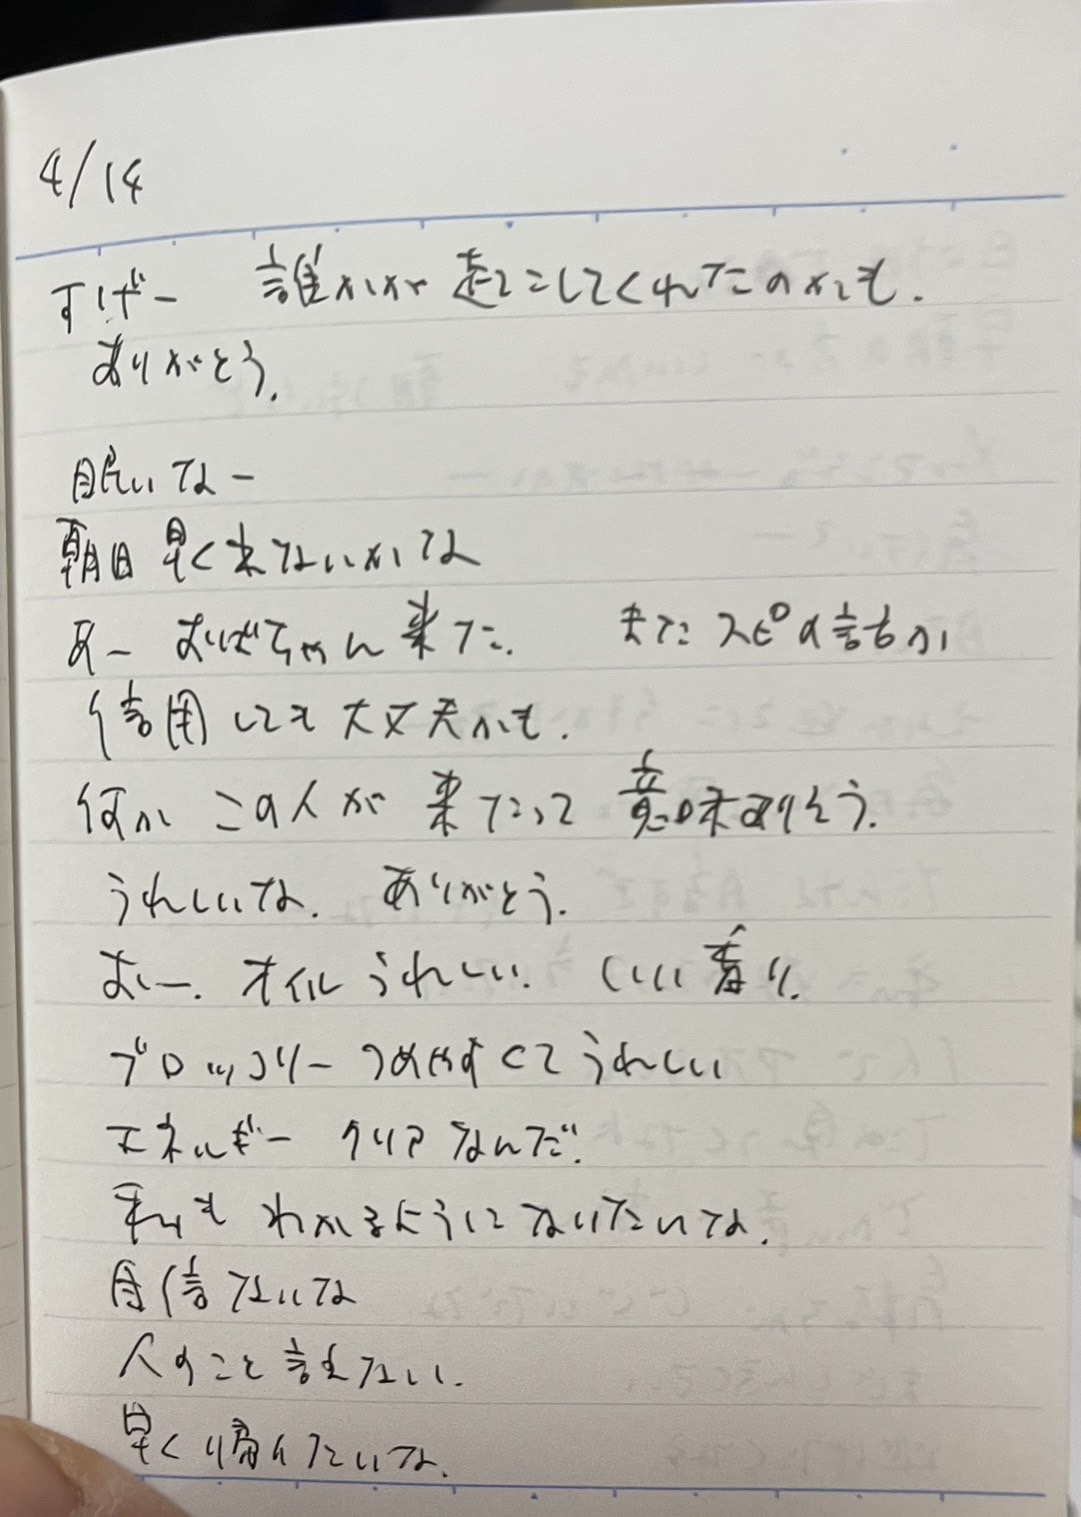 4/14
すげー 誰かが起こしてくれたのかも.
ありがとう.
眠いなー
朝日早く来ないかな
あー おばちゃん来た. またスピの話か
信用しても大丈夫かも.
何かこの人が来たって意味ありそう.
うれしいな. ありがとう.
おー. オイルうれしい. いい香り.
ブロッコリーつめやすくてうれしい
エネルギー クリアなんだ.
私もわかるようになりたいな.
自信ないな
人のこと言えない.
早く帰りたいな.